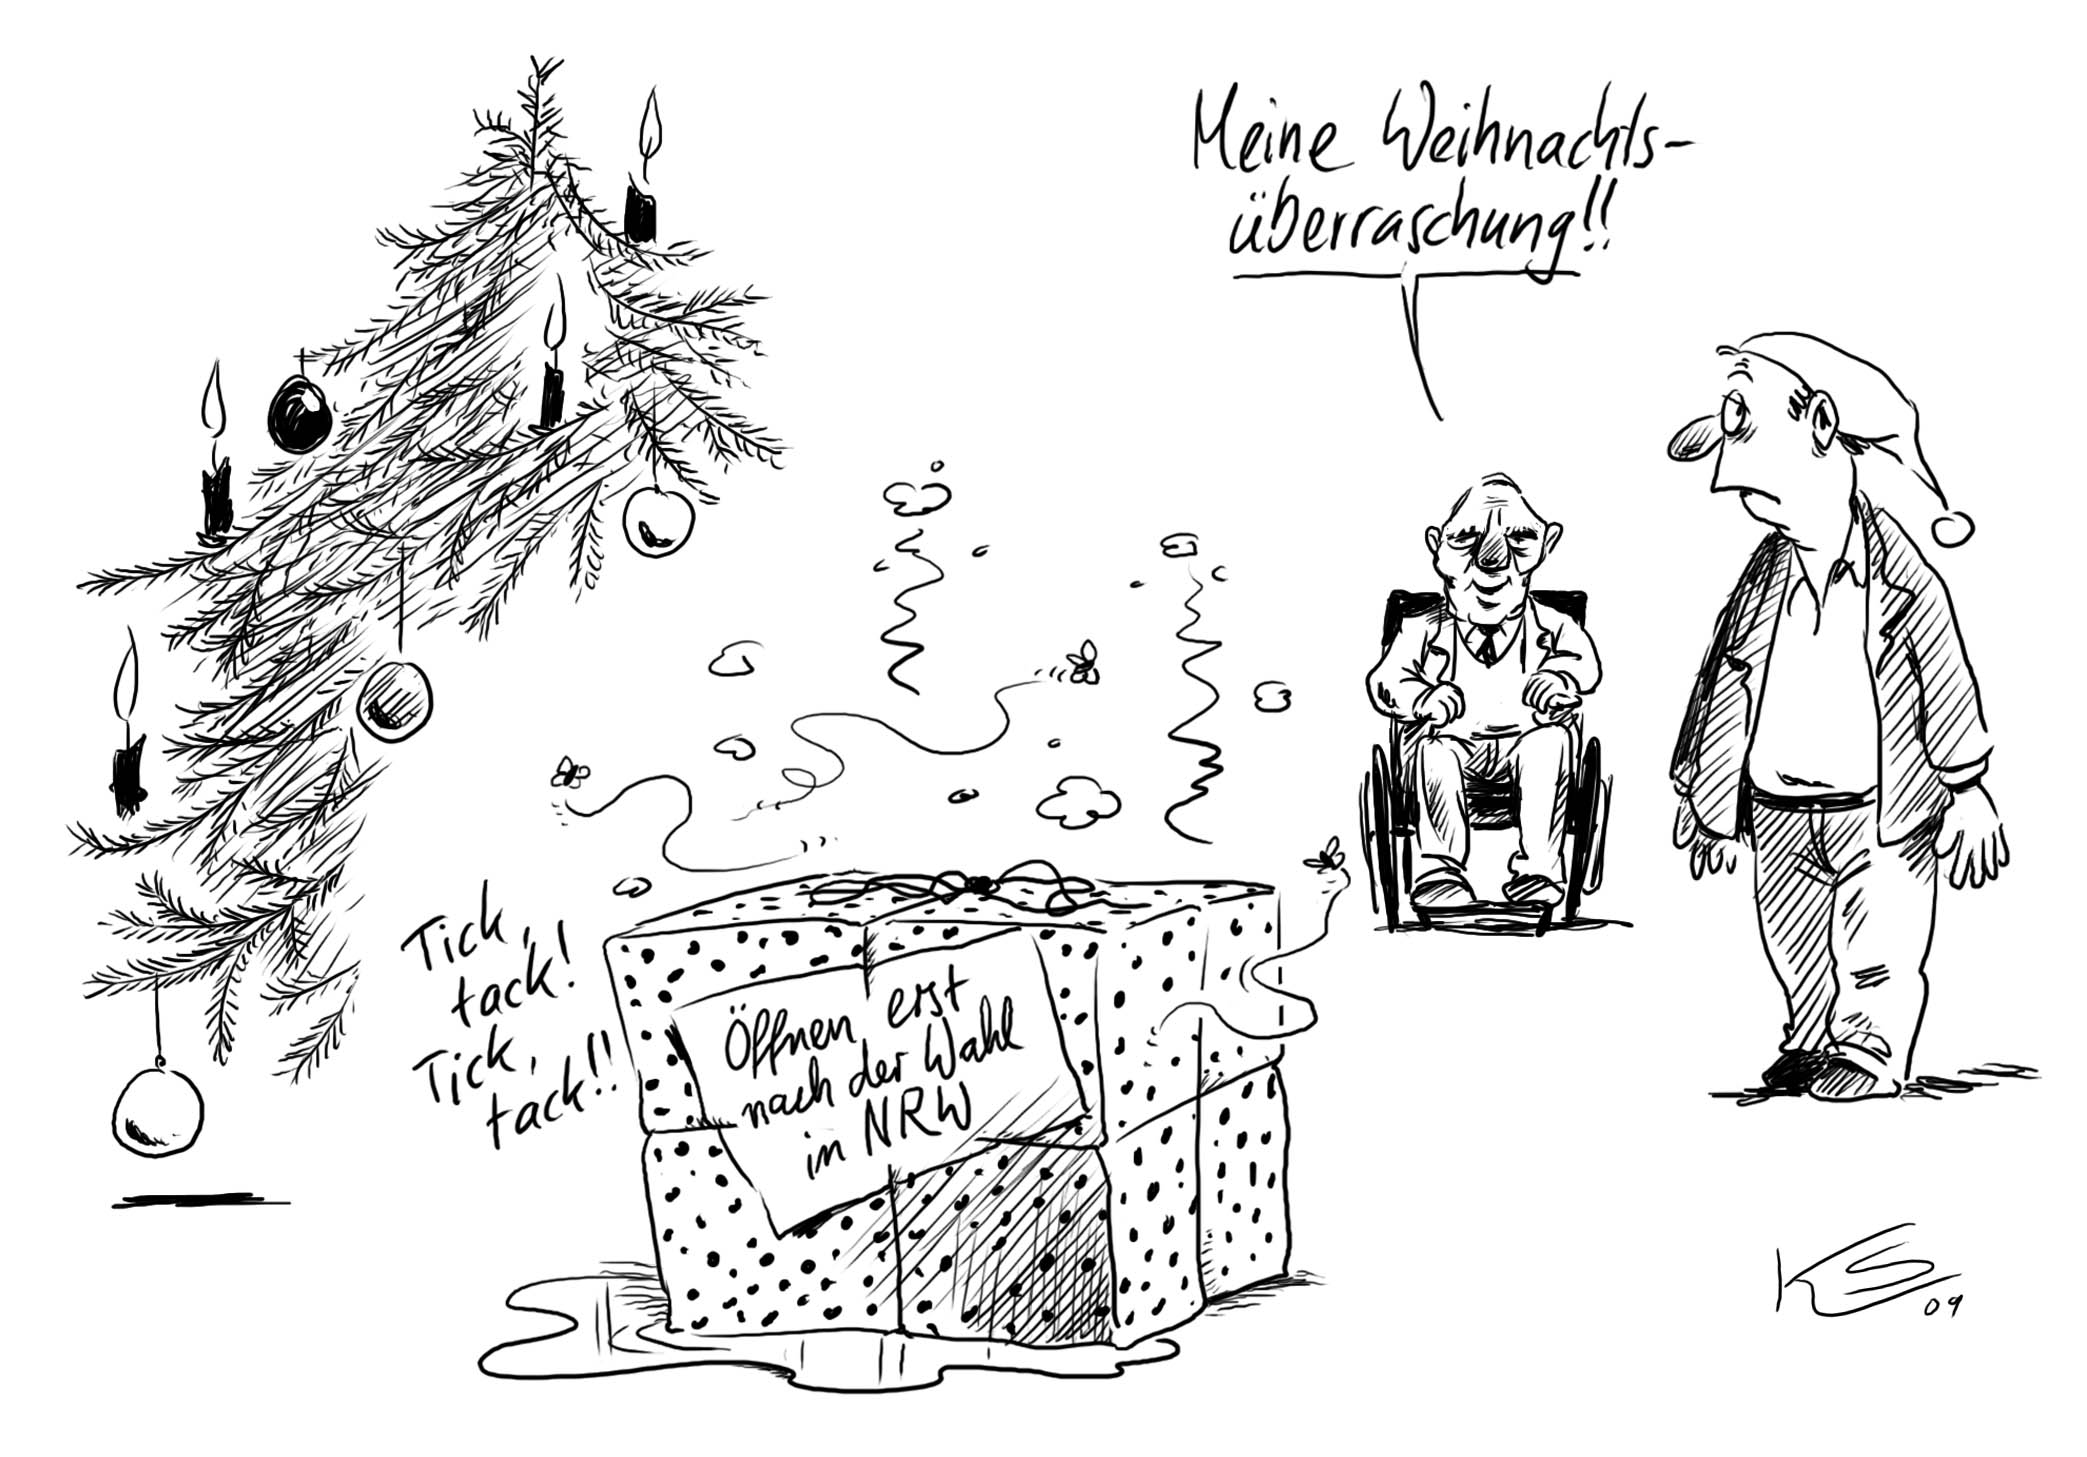 Meine Weihnachts-
überraschung!!
Tick,
tack!
Tick,
tack!!
Öffnen erst
nach der Wahl
in NRW
KS 09